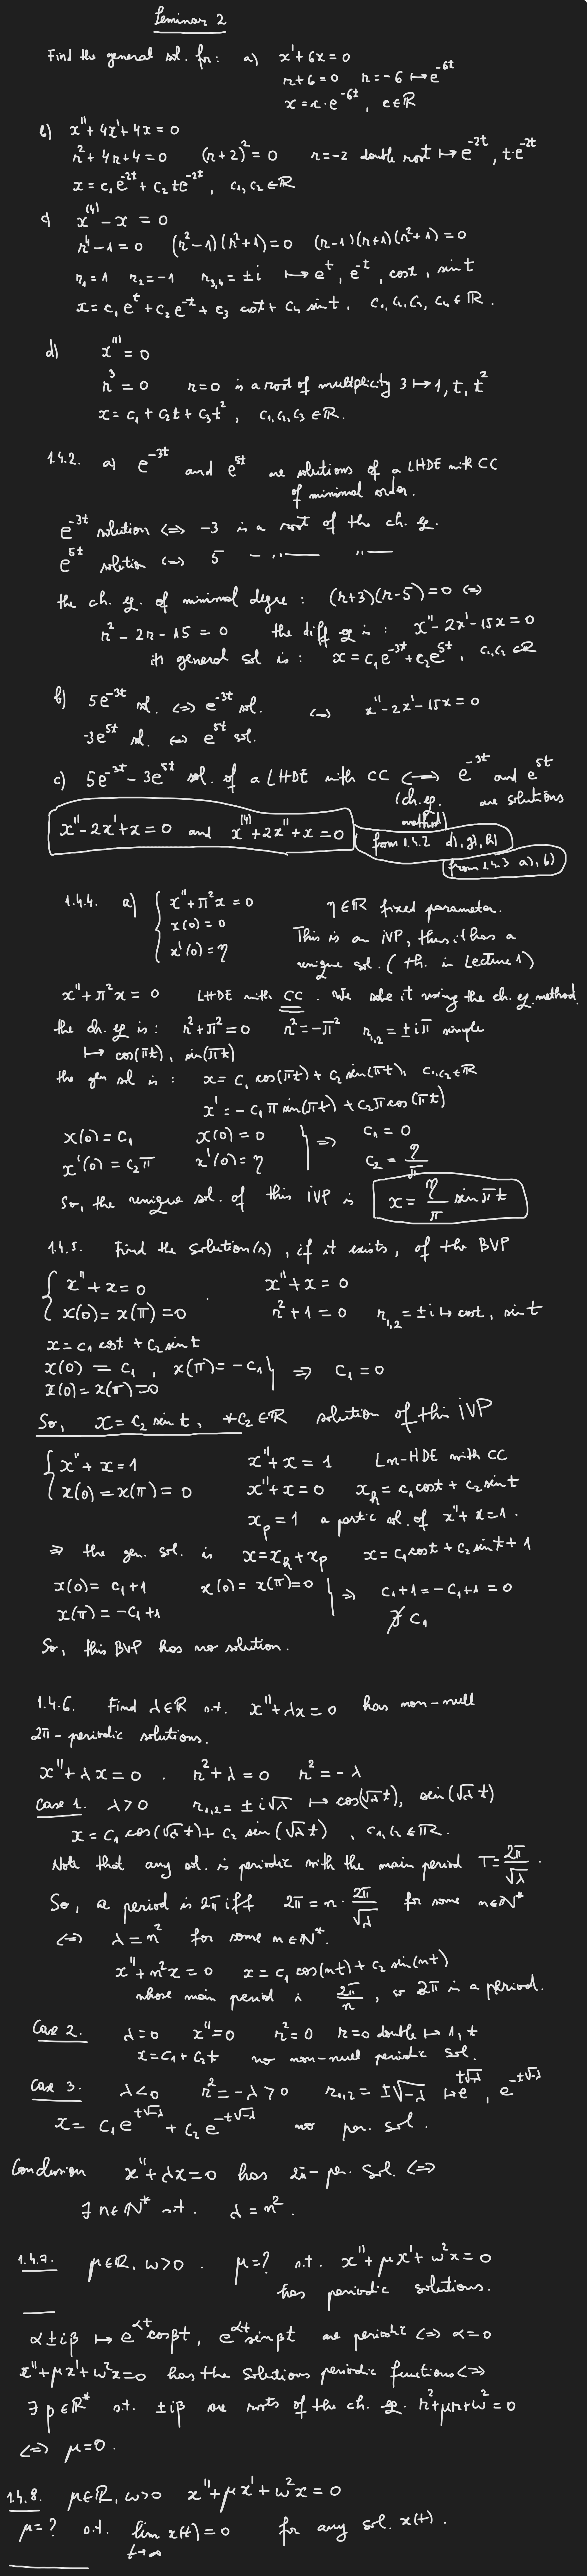 Seminar 2
Find the general sol. for: a) x' + 6x = 0
r + 6 = 0 r = -6 ↦ e^{-6t}
x = c · e^{-6t}, c ∈ ℝ
b) x'' + 4x' + 4x = 0
r² + 4r + 4 = 0 (r+2)² = 0 r = -2 double root ↦ e^{-2t}, t·e^{-2t}
x = c₁ e^{-2t} + c₂ t e^{-2t}, c₁, c₂ ∈ ℝ
c) x^{(4)} - x = 0
r⁴ - 1 = 0 (r²-1)(r²+1) = 0 (r-1)(r+1)(r²+1) = 0
r₁ = 1 r₂ = -1 r₃,₄ = ±i ↦ e^t, e^{-t}, cos t, sin t
x = c₁ e^t + c₂ e^{-t} + c₃ cos t + c₄ sin t, c₁, c₂, c₃, c₄ ∈ ℝ.
d) x''' = 0
r³ = 0 r = 0 is a root of multiplicity 3 ↦ 1, t, t²
x = c₁ + c₂t + c₃t², c₁, c₂, c₃ ∈ ℝ.
1.4.2. a) e^{-3t} and e^{5t} are solutions of a LHDE with CC
of minimal order.
e^{-3t} solution ⟺ -3 is a root of the ch. eq.
e^{5t} solution ⟺ 5 - ,, — ,, —
the ch. eq. of minimal degree: (r+3)(r-5) = 0 ⟺
r² - 2r - 15 = 0 the diff eq is: x'' - 2x' - 15x = 0
its general sol is: x = c₁e^{-3t} + c₂e^{5t}, c₁, c₂ ∈ ℝ
b) 5e^{-3t} sol. ⟺ e^{-3t} sol. ⟺ x'' - 2x' - 15x = 0
-3e^{5t} sol. ⟺ e^{5t} sol.
c) 5e^{-3t} - 3e^{5t} sol. of a LHDE with CC ⟺ e^{-3t} and e^{5t}
(ch. eq. method) are solutions
x'' - 2x' + x = 0 and x^{(4)} + 2x'' + x = 0 from 1.4.2 d), g), h)
from 1.4.3 a), b)
1.4.4. a) { x'' + π²x = 0 η ∈ ℝ fixed parameter.
x(0) = 0 This is an iVP, thus it has a
x'(0) = η unique sol. (th. in Lecture 1)
x'' + π²x = 0 LHDE with CC. We solve it using the ch. eq. method.
the ch. eq is: r² + π² = 0 r² = -π² r₁,₂ = ±iπ simple
↦ cos(πt), sin(πt)
the gen sol is: x = c₁ cos(πt) + c₂ sin(πt), c₁, c₂ ∈ ℝ
x' = -c₁ π sin(πt) + c₂π cos(πt)
x(0) = c₁ x(0) = 0 } ⇒ c₁ = 0
x'(0) = c₂π x'(0) = η c₂ = η/π
So, the unique sol. of this iVP is x = η/π sin πt
1.4.5. Find the solution(s), if it exists, of the BVP
{ x'' + x = 0 x'' + x = 0
x(0) = x(π) = 0 r² + 1 = 0 r₁,₂ = ±i ↦ cos t, sin t
x = c₁ cos t + c₂ sin t
x(0) = c₁, x(π) = -c₁ } ⇒ c₁ = 0
x(0) = x(π) = 0
So, x = c₂ sin t, ∀c₂ ∈ ℝ solution of this iVP
{ x'' + x = 1 x'' + x = 1 Ln-HDE with CC
x(0) = x(π) = 0 x'' + x = 0 x_h = c₁cos t + c₂ sin t
x_p = 1 a partic sol. of x'' + x = 1.
⇒ the gen. sol. is x = x_h + x_p x = c₁cos t + c₂ sin t + 1
x(0) = c₁ + 1 x(0) = x(π) = 0 } ⇒ c₁ + 1 = -c₁ + 1 = 0
x(π) = -c₁ + 1 ∄ c₁
So, this BVP has no solution.
1.4.6. Find λ ∈ ℝ s.t. x'' + λx = 0 has non-null
2π-periodic solutions.
x'' + λx = 0. r² + λ = 0 r² = -λ
Case 1. λ > 0 r₁,₂ = ±i√λ ↦ cos(√λ t), sin(√λ t)
x = c₁ cos(√λ t) + c₂ sin(√λ t), c₁, c₂ ∈ ℝ.
Note that any sol. is periodic with the main period T = 2π/√λ.
So, a period is 2π iff 2π = n · 2π/√λ for some n ∈ ℕ*
⟺ λ = n² for some n ∈ ℕ*.
x'' + n²x = 0 x = c₁ cos(nt) + c₂ sin(nt)
whose main period is 2π/n, so 2π is a period.
Case 2. λ = 0 x'' = 0 r² = 0 r = 0 double ↦ 1, t
x = c₁ + c₂t no non-null periodic sol.
Case 3. λ < 0 r² = -λ > 0 r₁,₂ = ±√-λ ↦ e^{t√-λ}, e^{-t√-λ}
x = c₁e^{t√-λ} + c₂ e^{-t√-λ} no per. sol.
Conclusion x'' + λx = 0 has 2π-per. sol. ⟺
∃ n ∈ ℕ* s.t. λ = n².
1.4.7. μ ∈ ℝ, ω > 0. μ = ? s.t. x'' + μx' + ω²x = 0
has periodic solutions.
α ± iβ ↦ e^{αt}cos βt, e^{αt}sin βt are periodic ⟺ α = 0
x'' + μx' + ω²x = 0 has the solutions periodic functions ⟺
∃ β ∈ ℝ* s.t. ±iβ are roots of the ch. eq. r² + μr + ω² = 0
⟺ μ = 0.
1.4.8. μ ∈ ℝ, ω > 0 x'' + μx' + ω²x = 0
μ = ? s.t. lim_{t→∞} x(t) = 0 for any sol. x(t).